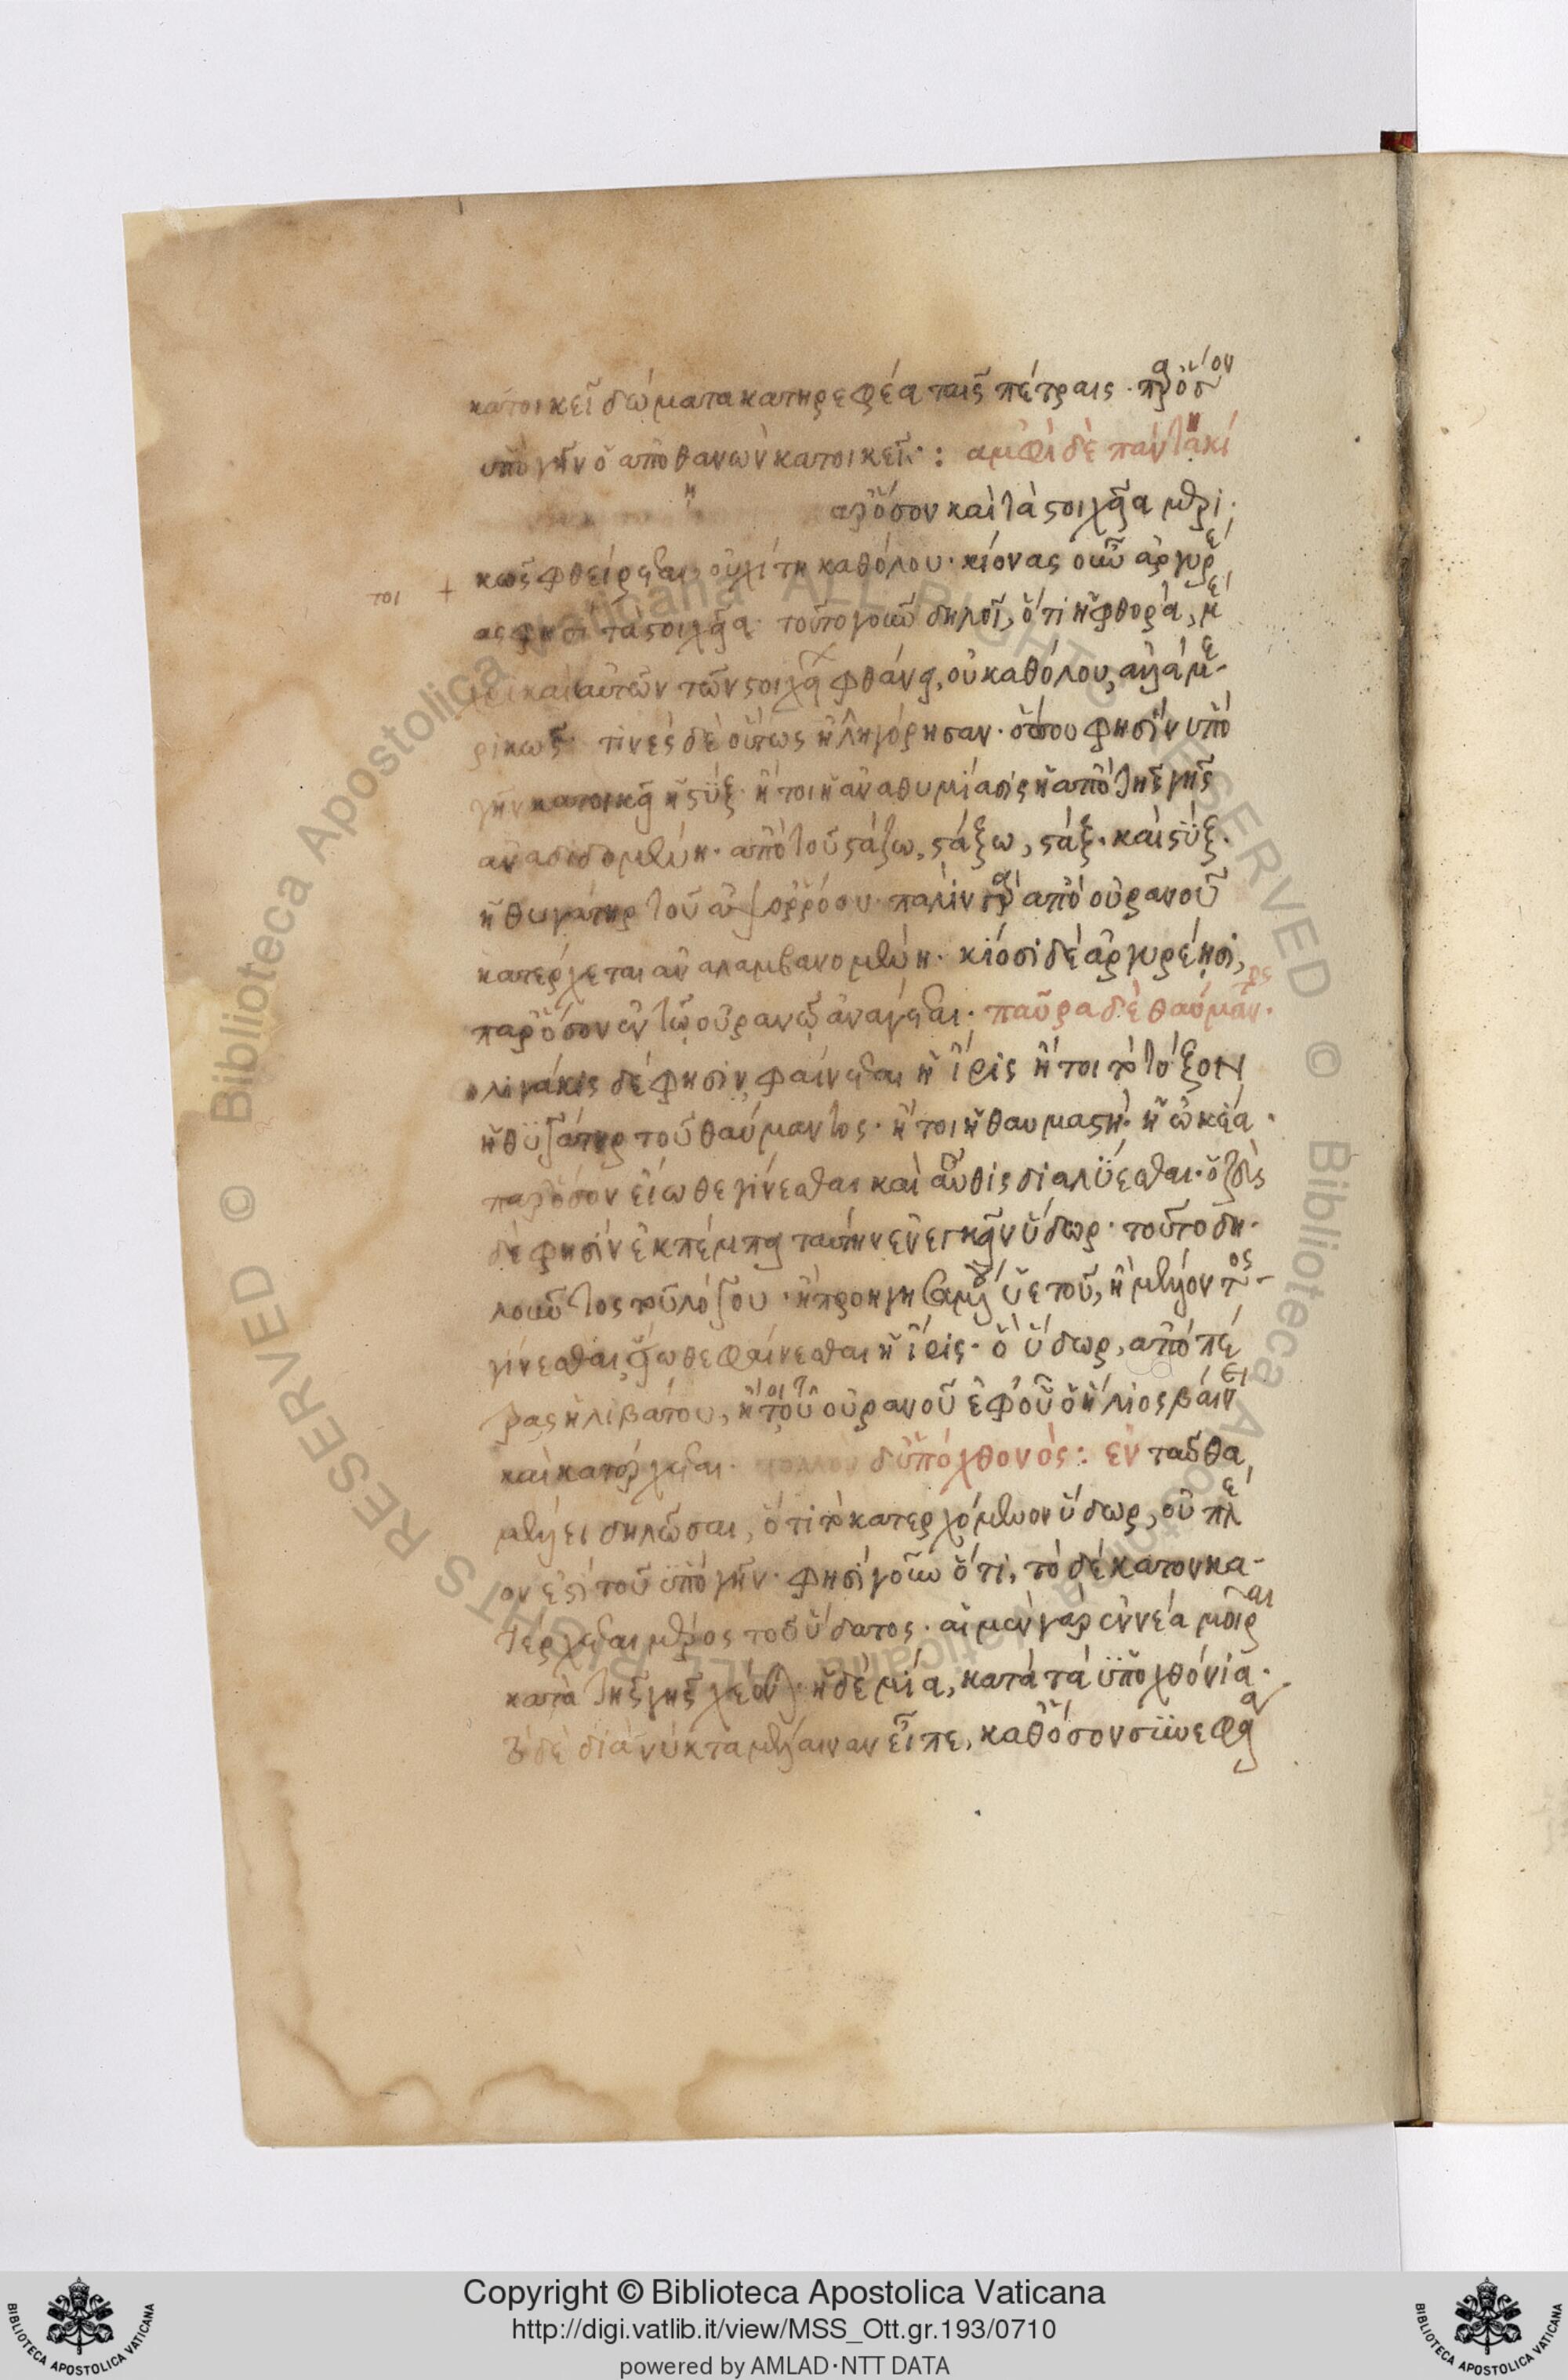 κατοικεῖ δώματα κατηρεφέα ταῖς πέτραις · παρόσον
ὑπὸ γῆν ὁ ἀποθανὼν κατοικεῖ : ἀμφὶ δὲ πάντη κί
παρόσον καὶ τὰ στοιχεῖα μερι
κῶς φθείρεσθαι, οὐχὶ τῆ καθόλου · κίονας οὖν ἀργυρέ
τοι +
ας φησὶ τὰ στοιχεῖα · τοῦτο γοῦν δηλοῖ, ὅτι ἡ φθορά, μέ
χρι καὶ αὐτῶν τῶν στοιχείων φθάνει, οὐ καθόλου, ἀλλὰ με
ρικῶς · τινὲς δὲ οὕτως ἠλληγόρησαν · ὅπου φησὶν ὑπὸ
γῆν κατοικεῖ ἡ στύξ · ἤτοι ἡ ἀναθυμίασις ἡ ἀπὸ τῆς γῆς
ἀναδιδομένη · ἀπὸ τοῦ στάζω, στάξω, στάξ · καὶ στύξ ·
ἡ θυγάτηρ τοῦ ἀψορρόου · πάλιν γὰρ ἀπὸ οὐρανοῦ
κατέρχεται ἀναλαμβανομένη · κίοσι δὲ ἀργυρέησι,
παρόσον ἐν τῶ οὐρανῶ ἀνάγεσθαι · παῦρα δὲ θαύμαν ·
ὀλιγάκις δέ φησιν, φαίνεσθαι ἡ ἶρις ἤτοι τὸ τόξον
ἡ θυγάτηρ τοῦ θαύμαντος · ἤτοι ἡ θαυμαστή · ἡ ὠκεῖα ·
παρόσον εἴωθε γίνεσθαι καὶ αὖθις διαλύεσθαι · ὁ ζεὺς
δέ φησιν ἐκπέμπει ταύτην ἐνεγκεῖν ὕδωρ · τοῦτο δη
λοῦντος τοῦ λόγου · ἢ προηγησαμένου ὑετοῦ, ἢ μέλλοντος
γίνεσθαι, εἴωθε φαίνεσθαι ἡ ἶρις · ὃ ὕδωρ, ἀπὸ πέ
τρας ἠλιβάτου, ἤτοι τοῦ οὐρανοῦ ἐφ' οὗ ὁ ἥλιος βαίνει
καὶ κατέρχεσθαι · πολλὸν δ' ὑπὸ χθονός : ἐνταῦθα
μέλλει δηλῶσαι, ὅτι τὸ κατερχόμενον ὕδωρ, οὐ πλέ
ον ἐστὶ τοῦ ὑπὸ γῆν · φησὶ γοῦν ὅτι, τὸ δέκατον κα
τέρχεσθαι μέρος τοῦ ὕδατος · αἱ μὲν γὰρ ἐννέα μοῖραι
κατὰ τῆς γῆς χέονται · ἡ δὲ μία, κατὰ τὰ ὑποχθόνια ·
τὸ δὲ διὰ νύκτα μέλαιναν εἶπε, καθόσον συννεφεί